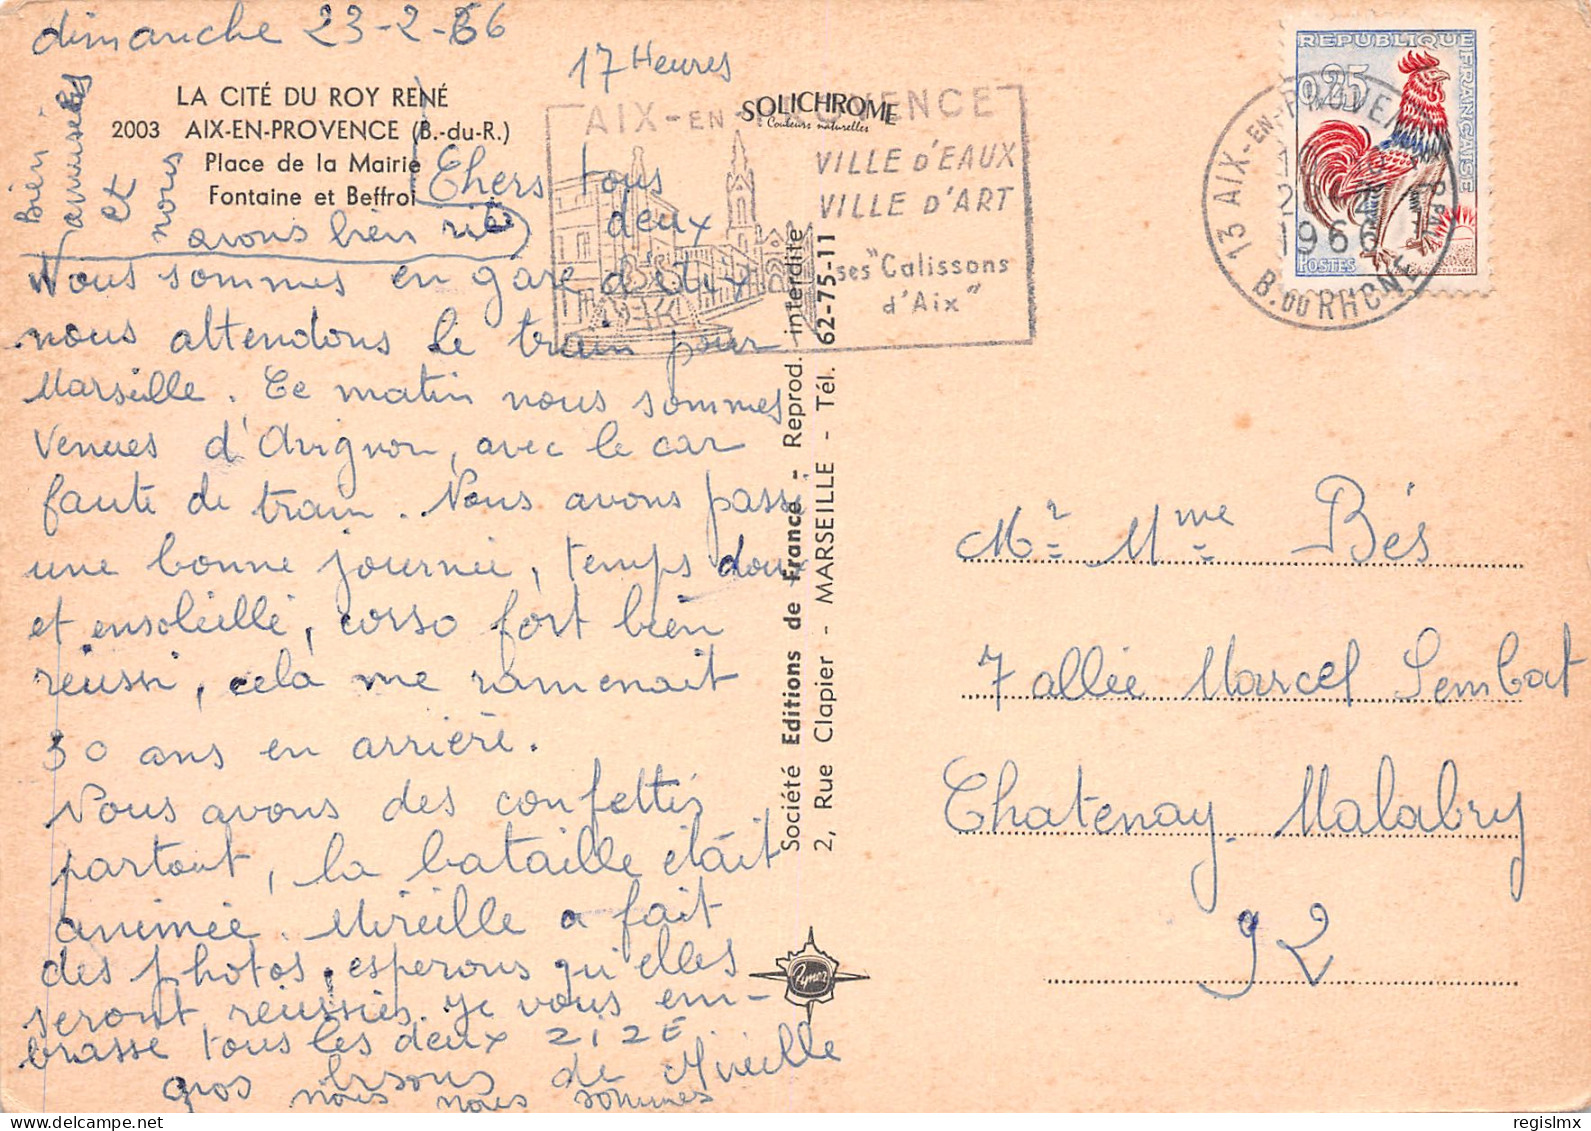 dimanche 23-2-66
17 Heures
LA CITÉ DU ROY RENÉ
2003 AIX-EN-PROVENCE (B.-du-R.)
Place de la Mairie
Fontaine et Beffroi
SOLICHROME
Couleurs naturelles
AIX-EN-PROVENCE
VILLE D'EAUX
VILLE D'ART
ses "Calissons
d'Aix"
REPUBLIQUE FRANÇAISE
0,25
POSTES
13 AIX-EN-PROVENCE PPAL
1966
B. DU RHONE
Chers tous
deux
Nous sommes en gare d'Aix
nous attendons le train pour
Marseille. Ce matin nous sommes
venues d'Avignon, avec le car
faute de train. Nous avons passé
une bonne journée, temps doux
et ensoleillé, corso fort bien
réussi, cela me ramenait
30 ans en arrière.
Nous avons des confettis
partout, la bataille était
animée. Mireille a fait
des photos, esperons qu'elles
seront réussies. Je vous em-
brasse tous les deux ZIZE
gros bisous de Mireille
nous nous sommes
bien amusées
et nous
avons bien ri
Société Editions de France - Reprod. interdite
2, Rue Clapier - MARSEILLE - Tél. 62-75-11
Rymer
Mr Mme Bés
7 allée Marcel Sembat
Chatenay-Malabry
92
www.delcampe.net
regislmx